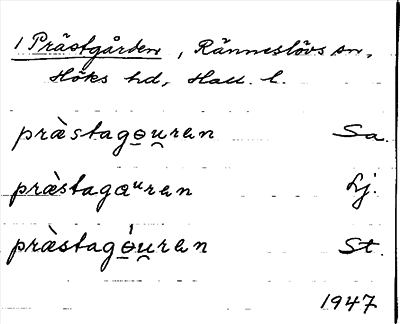 1 Prästgården, Ränneslövs sn,
Höks hd, Hall. l.
præ̀stago̲u̯rən Sa.
præ̀stagɑᵘrən Lj.
præ̀stagó̲u̯rən St.
1947